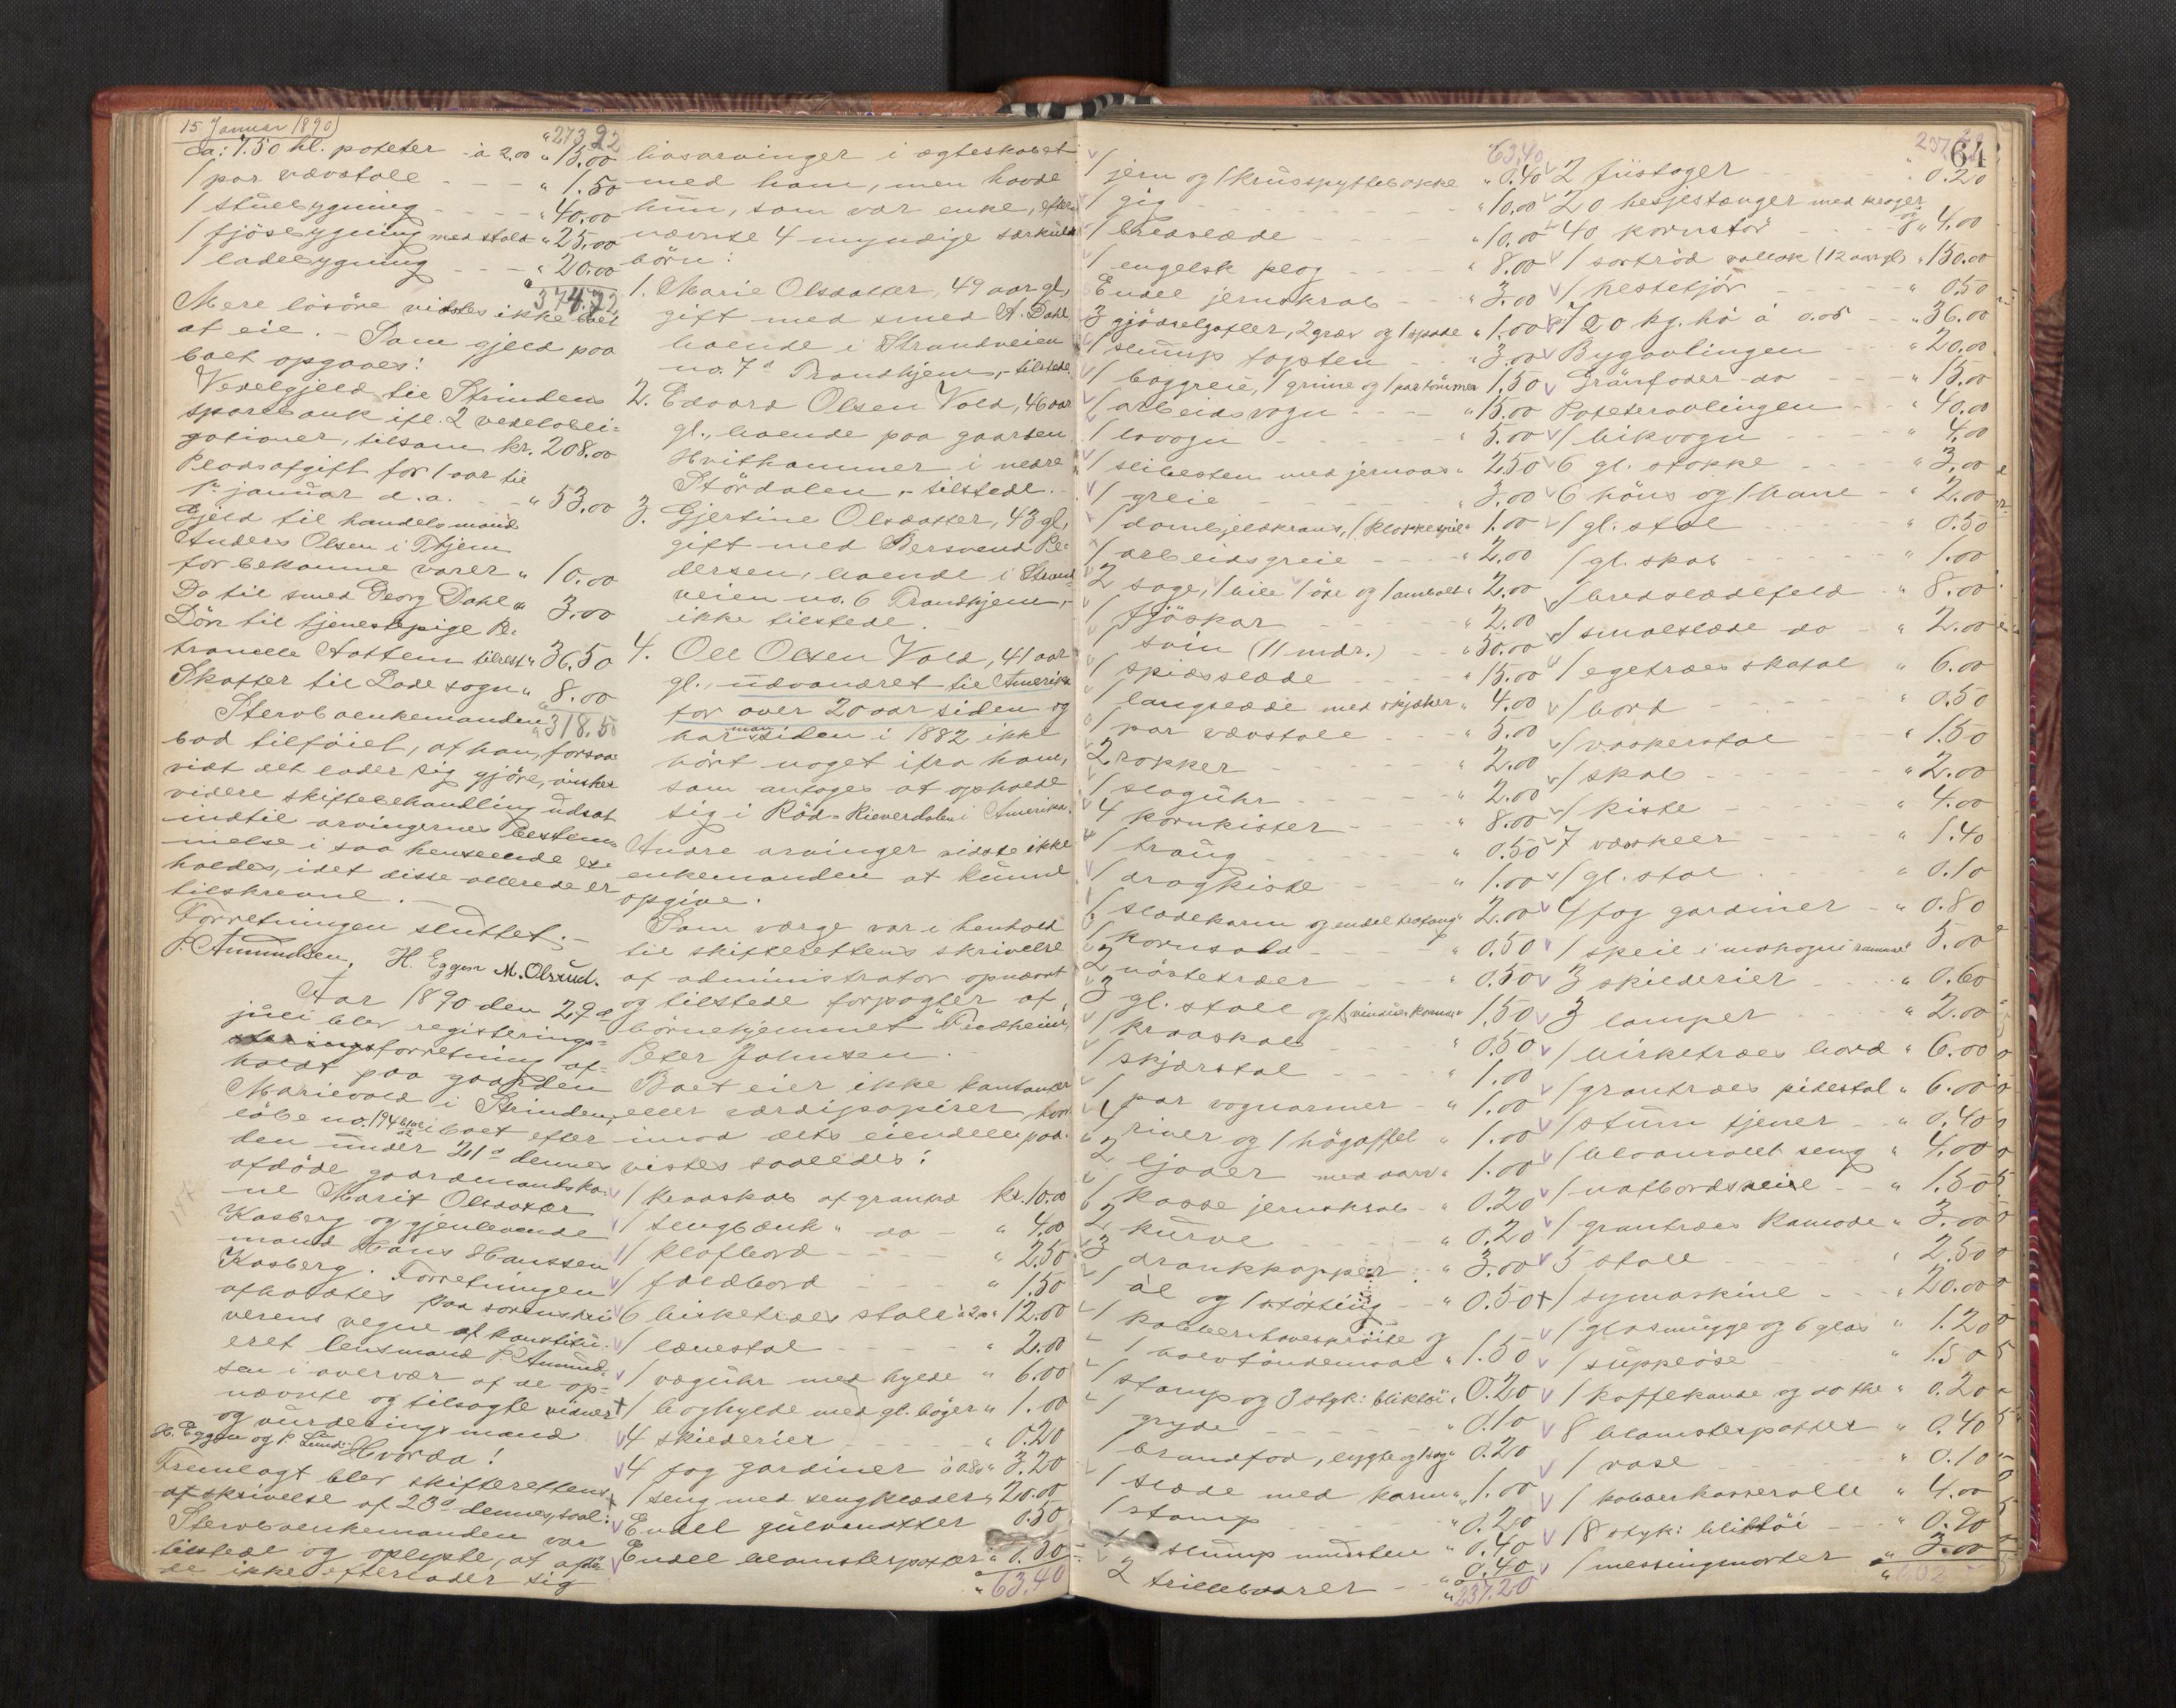 15 Januar 1890)
"273.92
ca: 7.50 hl. poteter à 2,00 " 15,00
1 par vævstole - - - " 1.50
1 stuebygning - - - " 40.00
1 fjösbygning med stald " 25,00
1 ladebygning - - - " 20.00
374.92
Mere lösöre vidstes ikke boet
at eie. - Som gjeld paa
boet opgaves:
Vexelgjeld til Strindens
sparebank ifl. 2 vexelobli=
gationer, tilsam kr. 208.00
Pladsafgift for 1 aar til
1st januar d.a. - - " 53.00
Gjeld til handelsmand
Anders Olsen i Thjem
for bekomne varer " 10.00
Do til smed Georg Dahl " 3.00
Lön til tjenestepige Pe=
tronelle Hottem tilrest " 36.50
Skatter til Lade sogn " 8.00
Stervboenkemanden "318.50
bad tilföiet, at han, forsaa=
vidt det lader sig gjöre, önsker
videre skiftebehandling udsat
indtil arvingernes bestem=
melse i saa henseende er
holdes, idet disse allerede er
tilskrevne. -
Forretningen sluttet. -
P. Amundsen, H. Eggen M. Olsrud.
Aar 1890 den 29d
juli blev registerings=
forretning af=
holdt paa gaarden
Marievold i Strinden,
löbe no. 194 i boet efter
den under 21d dennes
afdöde gaardmandsko=
ne Marit Olsdatter
Kasberg og gjenlevende
mand Hans Hanssen
Kasberg. Forretningen
afholdtes paa sorenskri
verens vegne af konstitu=
eret lensmand P. Amund=
sen i overvær af de op=
nævnte og tilsagte vidner
og vurderingsmænd
H. Eggen og P. Lund. Hvorda!
Fremlagt blev skifterettens
skrivelse af 23d dennes, saal:
Stervboenkemanden var
tilstede og oplyste, at afdö
de ikke efterlader sig
livsarvinger i ægteskabet
med ham, men havde
hun, som var enke, efter
nævnte 4 myndige særkuld
börn:
1. Marie Olsdatter, 49 aar gl,
gift med smed A. Dahl,
boende i Strandveien
no. 7d Trondhjem, - tilstede.
2. Edvard Olsen Vold, 46 aar
gl., boende paa gaarden
Hvithammer i nedre
Stördalen, - tilstede. -
3. Gjertine Olsdatter, 43 gl,
gift med Bersvend Pe=
dersen, boende i Strand=
veien no. 6 Trondhjem, -
ikke tilstede.
4. Ole Olsen Vold, 41 aar
gl., udvandret til Amerika
for over 20 aar siden og
har man siden i 1882 ikke
hört noget ifra ham,
som antages at opholde
sig i Röd-Rieverdalen i Amerika.
Andre arvinger vidste ikke
enkemanden at kunne
opgive.
Som værge var i henhold
til skifterettens skrivelse
af administrator opnævnt
og tilstede forpagter af
börnehjemmet "Fredheim",
Peter Johnsen. -
Boet eier ikke kontanter
eller værdipapirer, hvor
imod dets eiendele paa=
vistes saaledes:
1 klæskab af grantræ kr. 10.00
1 sengbænk " do - " 4,00
1 klafbord - - - " 2.50
1 foldbord - - - " 1.50
6 birketræes stole à 2,00 " 12.00
1 lænestol - - - " 2.00
1 væguhr med hylde " 6.00
1 boghylde med gl. böger " 1.00
4 skilderier - - " 0.20
4 fag gardiner à 0.80 " 3.20
1 seng med sengklæder " 20.00
Endel gulvmatter 0.50
Endel blomsterpotter "
"63,40
64
63,40
1 jern og 1 krusspyttebakke " 0.40
1 gig - - - " 10.00
1 bredslæde - - - " 10.00
1 engelsk plog - - - " 8.00
Endel jernskrab - - " 3.00
3 gjödselgafler, 2 græv og 1 spade " 1.00
1 slump tagsten - - " 3.00
1 baggreie, 1 grime og 1 par tömmer 1.50
1 arbeidsvogn - - - " 15.00
1 lovogn - - - " 5.00
1 slibesten med jernaas " 2.50
1 greie - - - " 3.00
1 dombjeldkrans, 1 klokkespil " 1.00
1 arbeidsgreie - - " 2.00
2 sage, 1 bile 1 öxe og 1 ambolt " 2.00
1 fjöskar - - - " 2.00
1 svin (11 mdr.) - - " 30.00
1 spidsslæde - - - " 15.00
1 langslæde med skjæker " 4.00
1 par vævstole - - " 5.00
2 rokker - - - " 2.00
1 slaguhr - - - " 2.00
4 kornkister - - - " 8.00
1 traug - - - " 0.50
1 dragkiste - - - " 1.00
1 slædekarm og endel 2.00
1 kornsold - - " 0.50
2 nöstetræer - - " 0.50
3 gl. stole og 1 1.50
1 kraaskab " 0.50
1 skjærstol " 1.00
1 par vognarmer - " 1.00
4 river og 1 högaffel " 1.00
2 ljaaer med " 1.00
1 kasse jernskrab - " 0.20
2 kurve - - - " 0.20
3 drankkopper - " 3.00
1 ål og - - " 0.50
1 og
1 halvtöndemaal " 1.50
1 stamp og 3 styk: bliktöi " 0.20
1 gryde - - - " 0.10
1 brandfod, 0.20
1 slæde med karm " 1.00
1 stamp - - - " 0.20
1 slump mursten " 0.40
2 trillebaarer - - " 0.40
"237.20
237.20
2 fustager - - - " 0.20
20 hesjestænger med kroger og
40 kornstör - - - " 4.00
1 sortröd vallak (12 aar gl) " 150.00
1 hestetjör - - - " 0.50
720 kg. hö à 0.05 - - " 36.00
Bygavlingen - - - " 20.00
Grönfoder do - - - " 15.00
Poteteravlingen - - " 40,00
1 bikvogn - - - " 4.00
6 gl. stokke - - - " 3.00
6 höns og 1 hane - " 2.00
1 gl. stol - - - " 0.50
1 gl. skab - - - " 1.00
1 bredslædefeld - " 8.00
1 smalslæde do - " 2.00
1 egetræes skatol " 6.00
1 bord - - - " 0.50
1 vaskerstol - - " 1.50
1 skab - - - " 2.00
1 kiste - - - " 4.00
7 vævskeer - - - " 1.40
1 gl. stol - - - " 0.10
4 fag gardiner - " 0.80
1 speil i mahogni ramme " 5.00
3 skilderier - - " 0.60
3 lamper - - - " 2.00
1 birketræes bord " 6.00
1 grantræes pidestal " 6.00
1 stum tjener - - " 0.40
1 blaamalet seng " 4.00
1 natbordsveise - - " 1.50
1 grantræes Komode " 3.00
5 stole - - - " 2.50
1 symaskine - - " 20.00
1 glasmugge og 6 glas " 1.20
1 suppeöse - - " 1.50
1 kaffekande og do the " 0.20
8 blomsterpotter " 0.40
1 vase - - - " 0.10
1 kobberkasserolle " 4.00
18 styk: bliktöi - " 0.90
1 messingmorter " 3.00